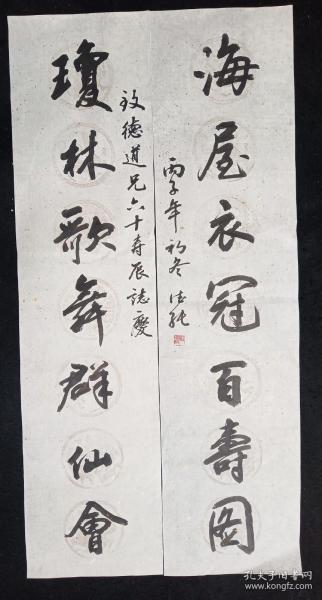 海屋衣冠百壽图
丙子年初冬
瓊林歌舞群仙會
致德道兄六十寿辰誌慶
孔夫子旧书网